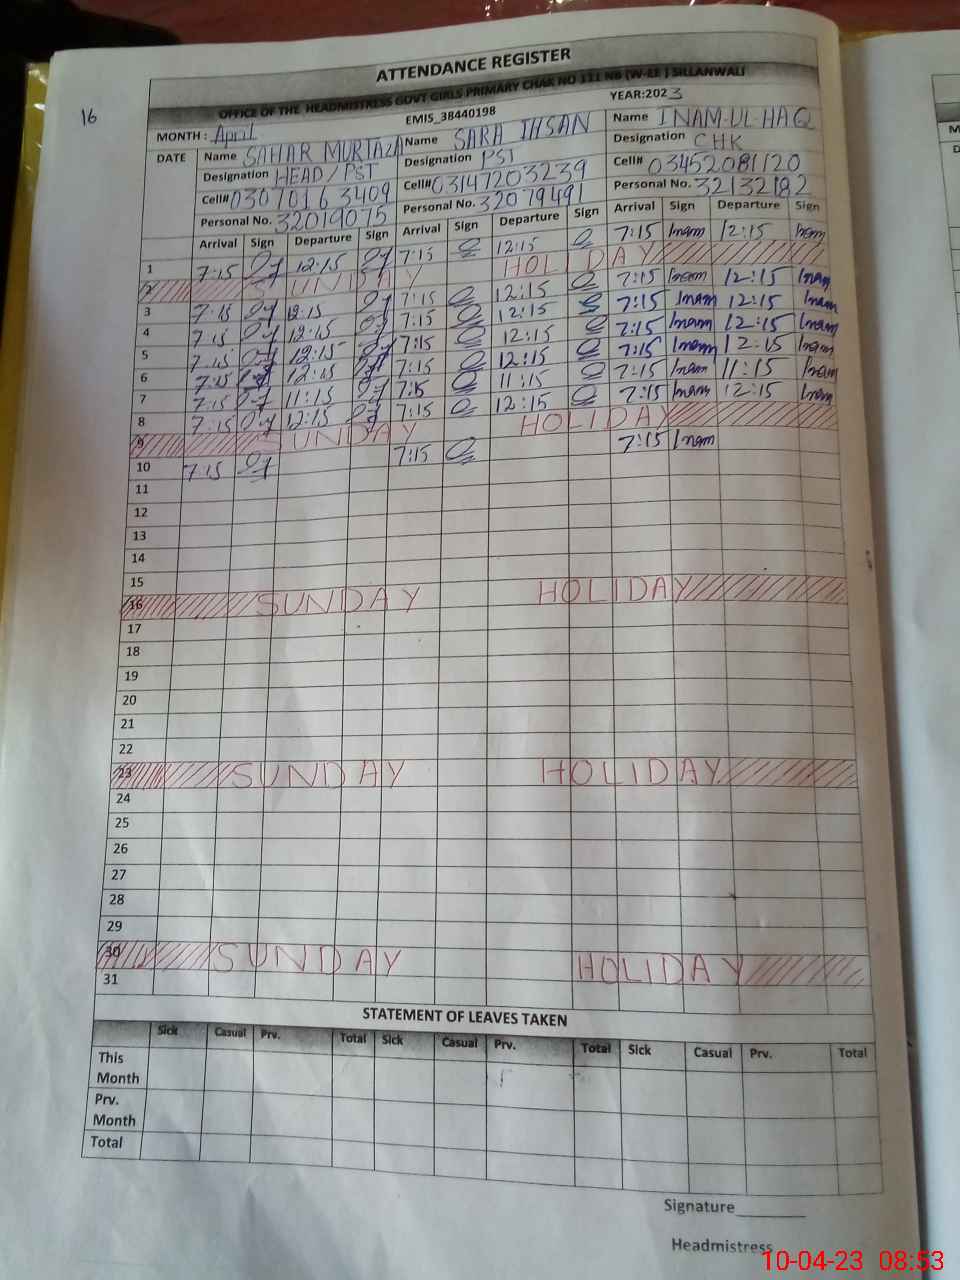 16
ATTENDANCE REGISTER
OFFICE OF THE HEADMISTRESS GOVT GIRLS PRIMARY CHAK NO 111 NB (W-EE) SILLANWALI
MONTH: April EMIS_38440198 YEAR:2023
DATE Name SAHAR MURTAZA Name SARA IHSAN Name INAM-UL-HAQ
Designation HEAD/PST Designation PST Designation CHK
Cell# 0307016 3409 Cell# 03147203239 Cell# 03452081120
Personal No. 32019075 Personal No. 32079491 Personal No. 32132182
Arrival Sign Departure Sign Arrival Sign Departure Sign Arrival Sign Departure Sign
1 7:15 12:15 7:15 12:15 7:15 Inam 12:15 Inam
2 SUNDAY HOLIDAY
3 7:15 12:15 7:15 12:15 7:15 Inam 12:15 Inam
4 7:15 12:15 7:15 12:15 7:15 Inam 12:15 Inam
5 7:15 12:15 7:15 12:15 7:15 Inam 12:15 Inam
6 7:15 12:15 7:15 12:15 7:15 Inam 12:15 Inam
7 7:15 11:15 7:15 11:15 7:15 Inam 11:15 Inam
8 7:15 12:15 7:15 12:15 7:15 Inam 12:15 Inam
9 SUNDAY HOLIDAY
10 7:15 7:15 7:15 Inam
11
12
13
14
15
16 SUNDAY HOLIDAY
17
18
19
20
21
22
23 SUNDAY HOLIDAY
24
25
26
27
28
29
30 SUNDAY HOLIDAY
31
STATEMENT OF LEAVES TAKEN
Sick Casual Prv. Total Sick Casual Prv. Total Sick Casual Prv. Total
This
Month
Prv.
Month
Total
Signature
Headmistress
10-04-23 08:53